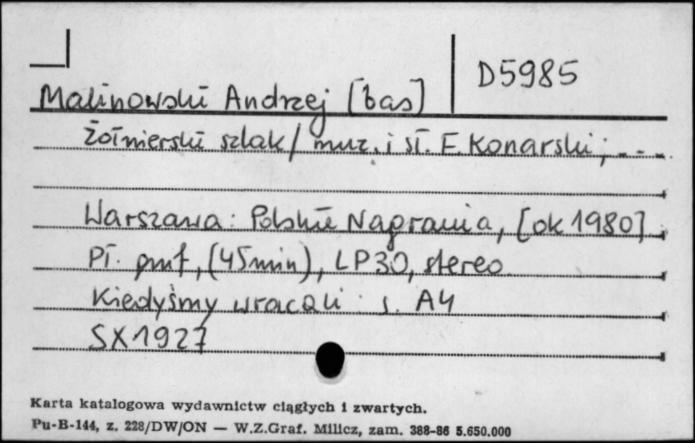 D5985
Malinowski Andrzej [bas]
Żołnierski szlak / muz. i sł. E. Konarski; ...
Warszawa: Polskie Nagrania, [ok 1980]
Pł. gmf, (45 min), LP30, stereo
Kiedyśmy wracali s. A4
SX1927
Karta katalogowa wydawnictw ciągłych i zwartych.
Pu-B-144, z. 228/DW/ON — W.Z.Graf. Milicz, zam. 388-86 5.650.000